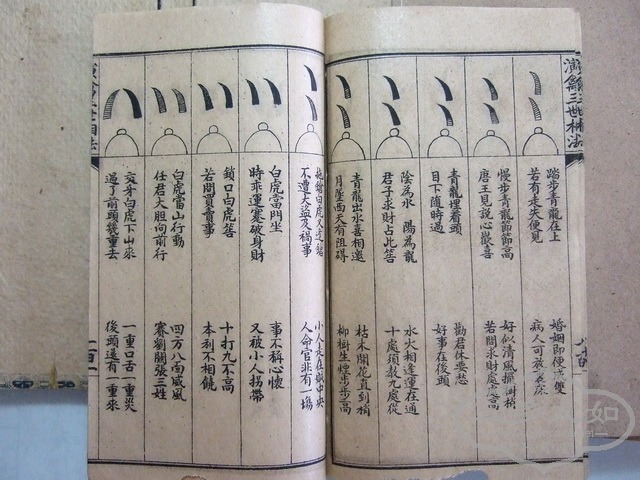 演禽三世相法
踏步青龍在上
若有走失便見
婚姻即便
病人可
慢步青龍節節高
唐王見說心歡喜
好似清風擺樹梢
若問求財處處高
青龍埋着頭
目下隨時過
勸君休要愁
好事在後頭
陰為水 陽為龍
君子求財占此筶
水火相逢運在通
十處須教九處從
青龍出水喜相逢
月墜西天有阻碍
枯木開花直到梢
柳樹生煙步步高
拖鎗白虎又走站
不遭大盜及禍事
小人走在獄中央
人命官非有一塲
白虎當門坐
時乖運蹇破身財
事不稱心懷
又被小人拐帶
鎖口白虎筶
若問買賣事
十打九不高
本利不相饒
白虎當山行動
任君大胆向前行
四方八面威風
賽劉關張三姓
交牙白虎下山來
過了前頭幾重去
一重口舌一重災
後頭還有一重來